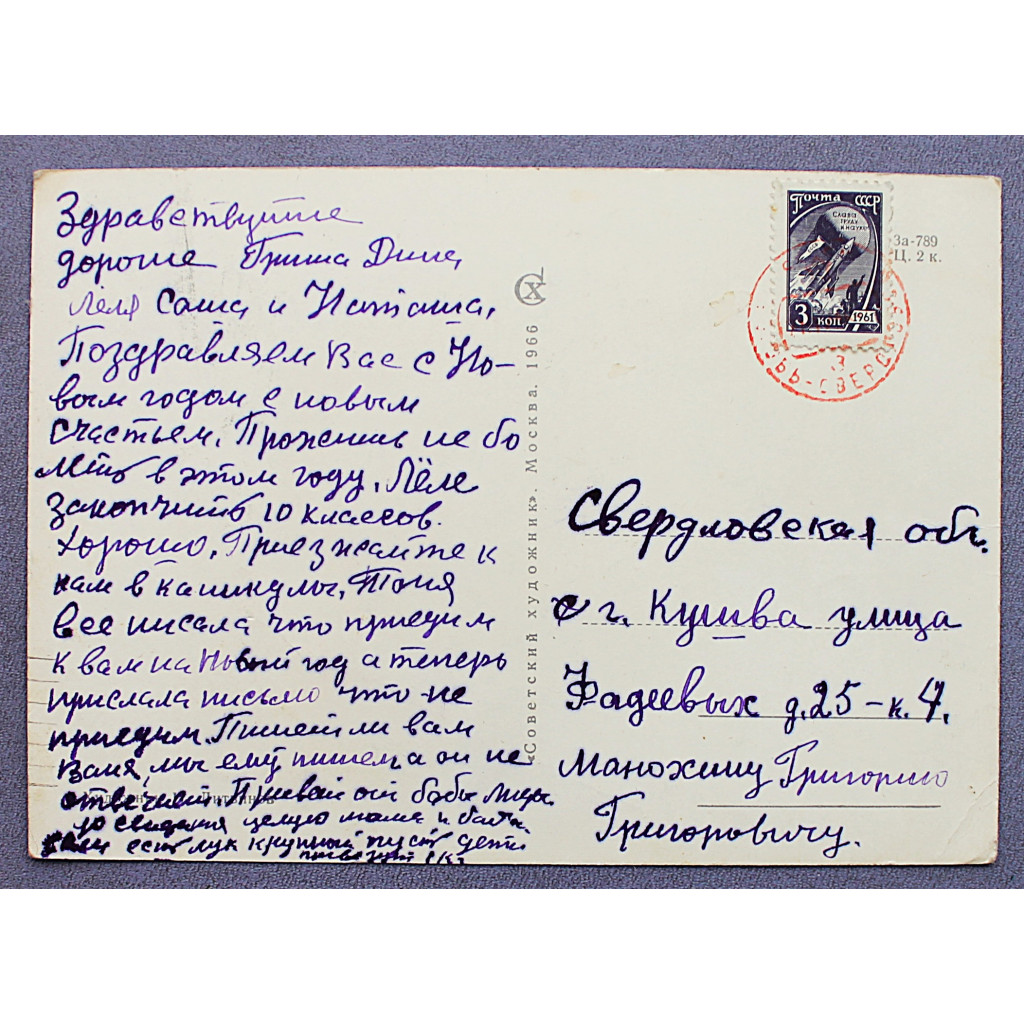 Здравствуйте
дорогие Гриша Дина
Лёля Саша и Наташа.
Поздравляем Вас с Но-
вым годом с новым
счастьем. Прожить не бо
леть в этом году. Лёле
закончить 10 классов.
Хорошо. Приезжайте к
нам в каникулы. Тоня
все писала что приедим
к вам на Новый год а теперь
прислала письмо что не
приедим. Пишет ли вам
Ваня, мы ему пишем а он не
отвечает. Привет от бабы
до свидания целую мама и
если есть лук крупный пусть дети
привезут
«Советский художник». Москва. 1966
СХ
За-789
Ц. 2 к.
Почта СССР
Слава
труду
и науке
3 коп. 1961
3
Свердловская обл.
г. Кушва улица
Фадеевых д. 25-к. 4.
Манохину Григорию
Григоровичу.